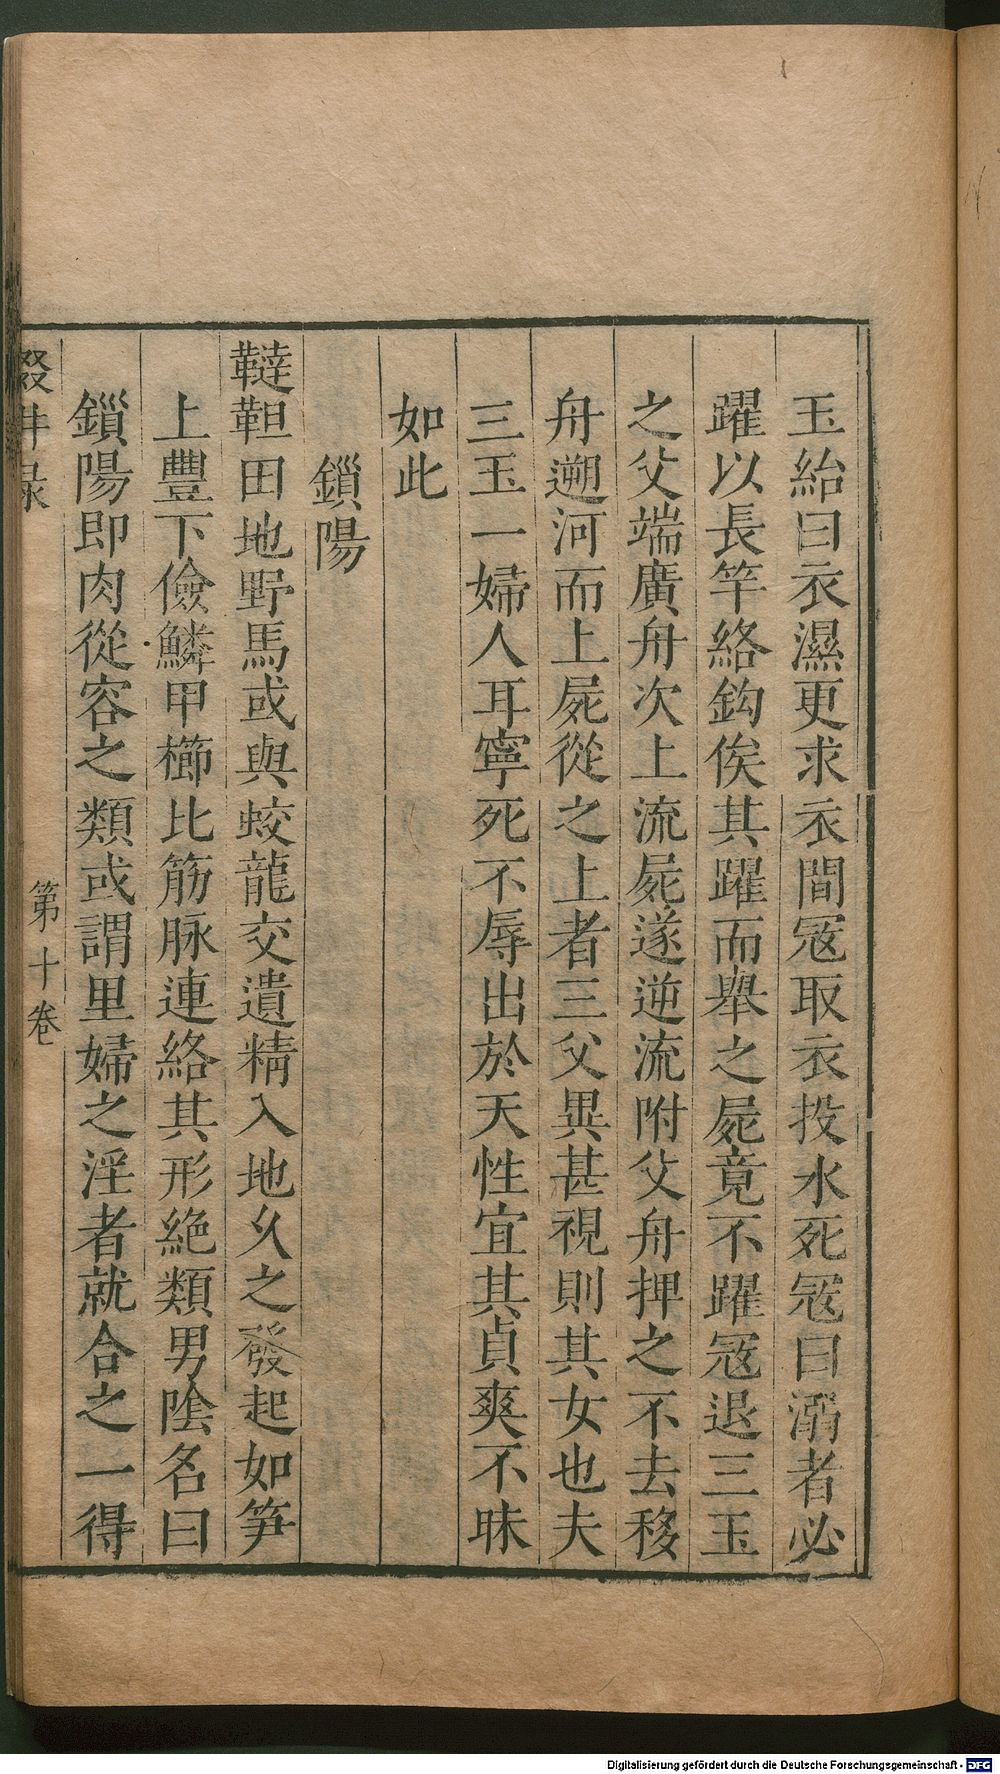 玉紿曰衣濕更求衣間冦取衣投水死冦曰溺者必
躍以長竿絡鈎俟其躍而舉之屍竟不躍冦退三玉
之父端廣舟次上流屍遂逆流附父舟押之不去移
舟遡河而上屍從之上者三父異甚視則其女也夫
三玉一婦人耳寧死不辱出於天性宜其貞爽不昧
如此
鎻陽
韃靼田地野馬或與蛟龍交遺精入地乆之發起如笋
上豐下儉鱗甲櫛比筋脉連絡其形絶類男陰名曰
鎻陽即肉從容之類或謂里婦之淫者就合之一得
第十卷
Digitalisierung gefördert durch die Deutsche Forschungsgemeinschaft - DFG